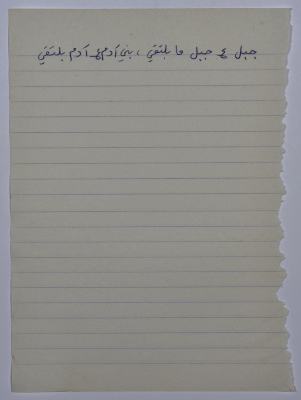 جبل ع جبل ما بلتقي ، بني آدم ع آدم بلتقي